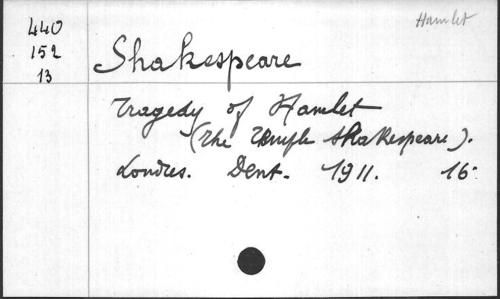 440
152
13
Hamlet
Shakespeare
Tragedy of Hamlet
(The Temple Shakespeare).
Londres. Dent. 1911. 16°